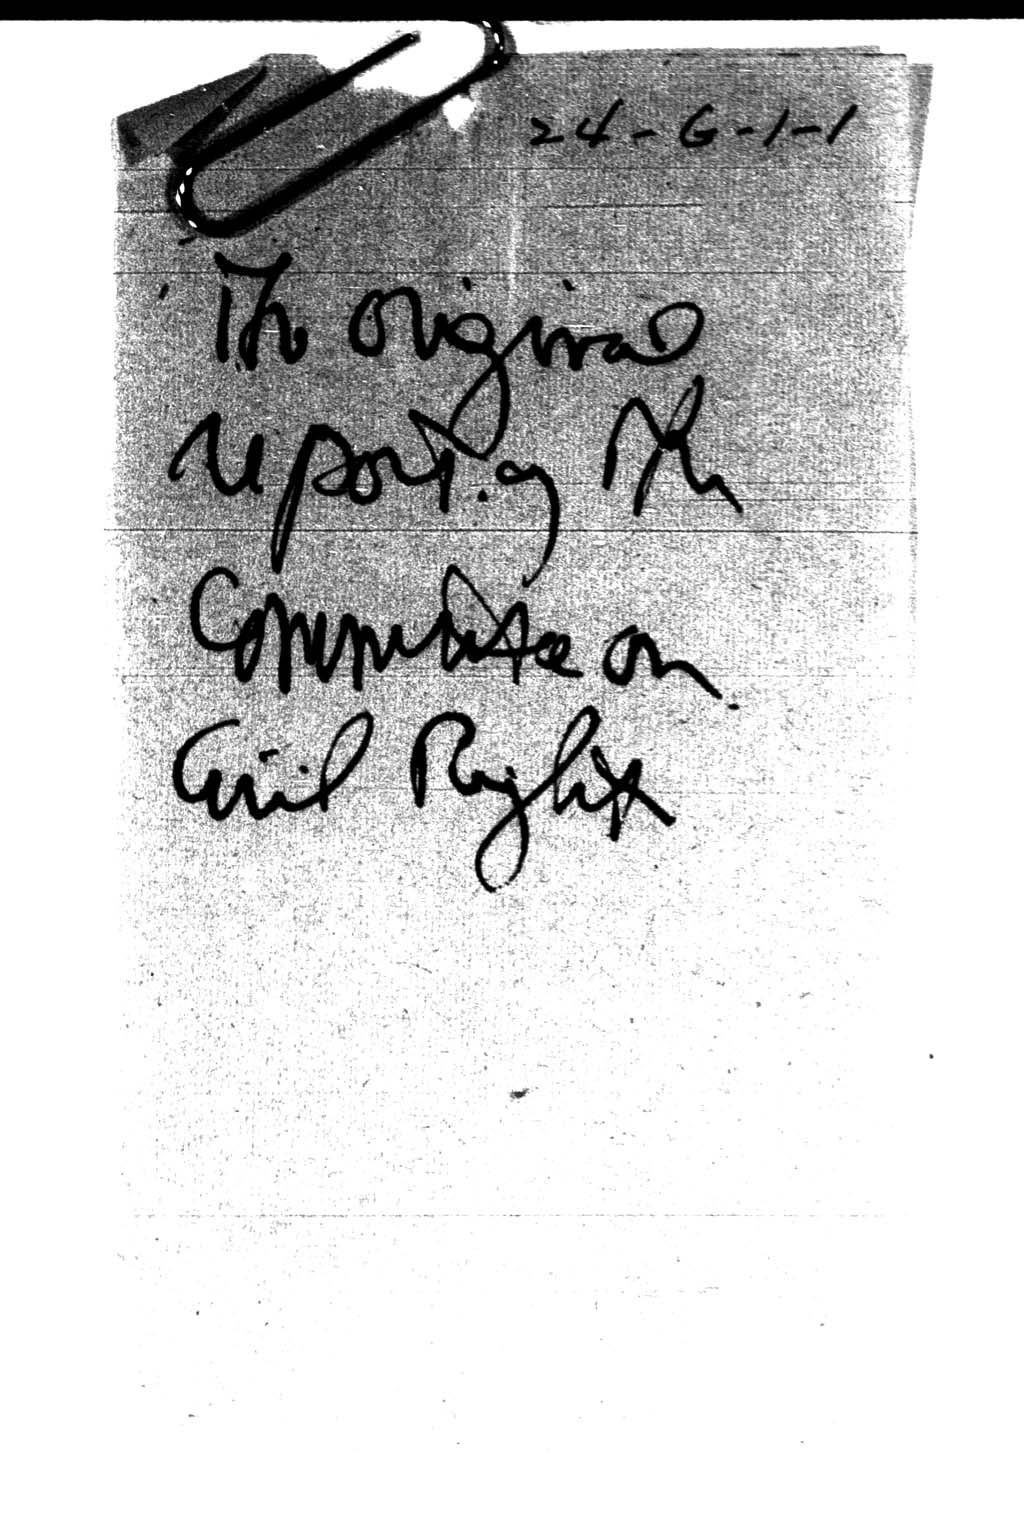 24-G-1-1
The original
report of the
Committee on
Civil Rights